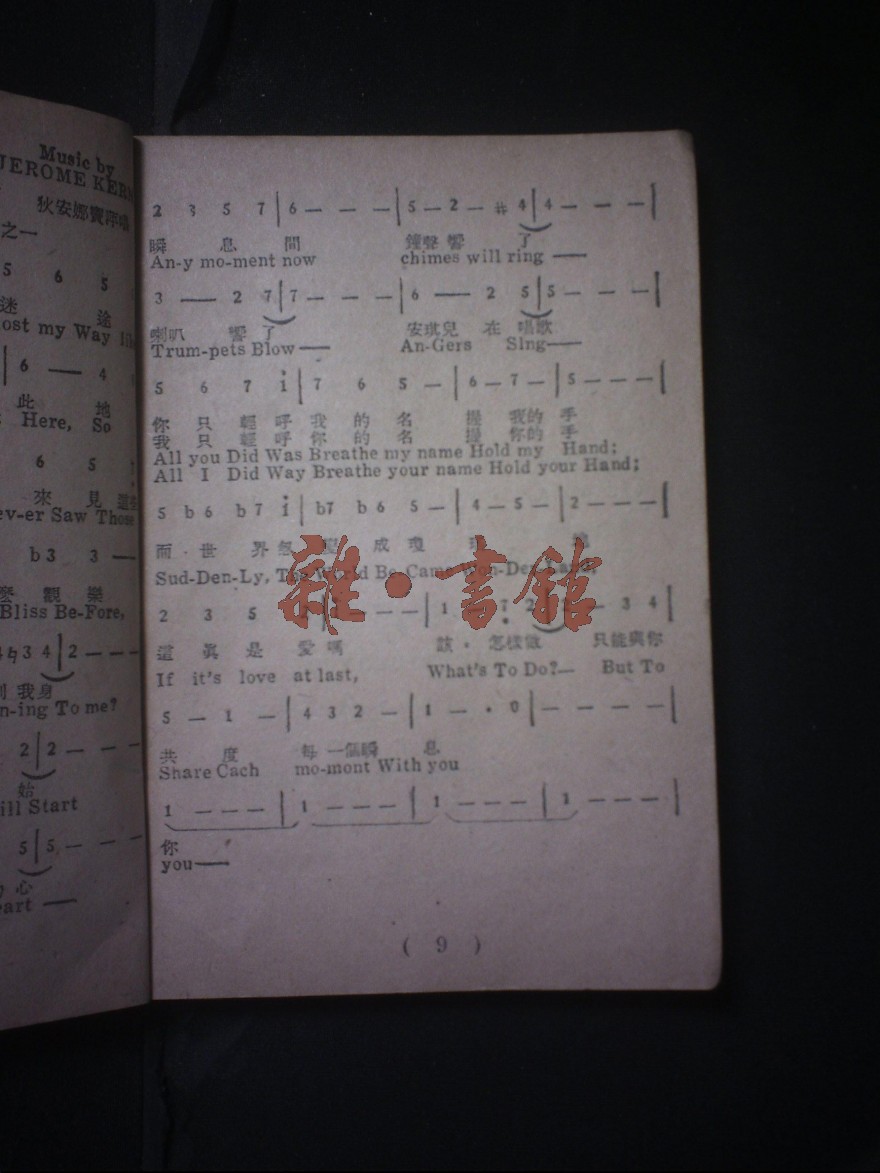 Music by
JEROME KERN
狄安娜寶萍唱
之一
5 6 5
迷 途
ost my Way
6 — 4
此 地
Here, So
6 5
來 見 這些
ev-er Saw Those
b3 3 —
歡 樂
Bliss Be-Fore,
3 4 | 2 — — —
我 身
n-ing To me?
2 | 2 — — —
始
ill Start
5 | 5 — — —
心
eart —
2 3 5 7 | 6 — — — | 5 — 2 — #4 | 4 — — — |
瞬 息 間 鐘聲 響 了
An-y mo-ment now chimes will ring —
3 — 2 7 | 7 — — — | 6 — 2 5 | 5 — — — |
喇叭 響 了 安琪兒 在 唱歌
Trum-pets Blow — An-Gers Sing —
5 6 7 i | 7 6 5 — | 6 — 7 — | 5 — — — |
你 只 輕 呼 我 的 名 握 我的 手
我 只 輕 呼 你 的 名 握 你的 手
All you Did Was Breathe my name Hold my Hand;
All I Did Way Breathe your name Hold your Hand;
5 b6 b7 i | b7 b6 5 — | 4 — 5 — | 2 — — — |
而 · 世 界 成
Sud-Den-Ly, The World Be-Came Won-Der-Land,
2 3 5 — — | 1 — 2 — 3 4 |
這 真 是 愛 嗎 該 · 怎樣做 只能與你
If it's love at last, What's To Do?— But To
5 — 1 — | 4 3 2 — | 1 — · 0 | — — — — |
共 度 每 一個瞬 息
Share Cach mo-mont With you
1 — — — | 1 — — — | 1 — — — | 1 — — — |
你
you —
( 9 )
雜·書館